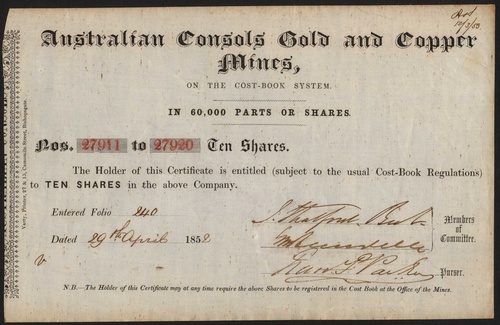 Australian Consols Gold and Copper
Mines,
ON THE COST-BOOK SYSTEM.
IN 60,000 PARTS OR SHARES.
Nos. 27911 to 27920 Ten Shares.
The Holder of this Certificate is entitled (subject to the usual Cost-Book Regulations)
to TEN SHARES in the above Company.
Entered Folio 240
Dated 29th April 1852
Members
of
Committee.
Purser.
N.B.—The Holder of this Certificate may at any time require the above Shares to be registered in the Cost Book at the Office of the Mines.
Printer, 27 & 15, Camomile Street, Bishopsgate.